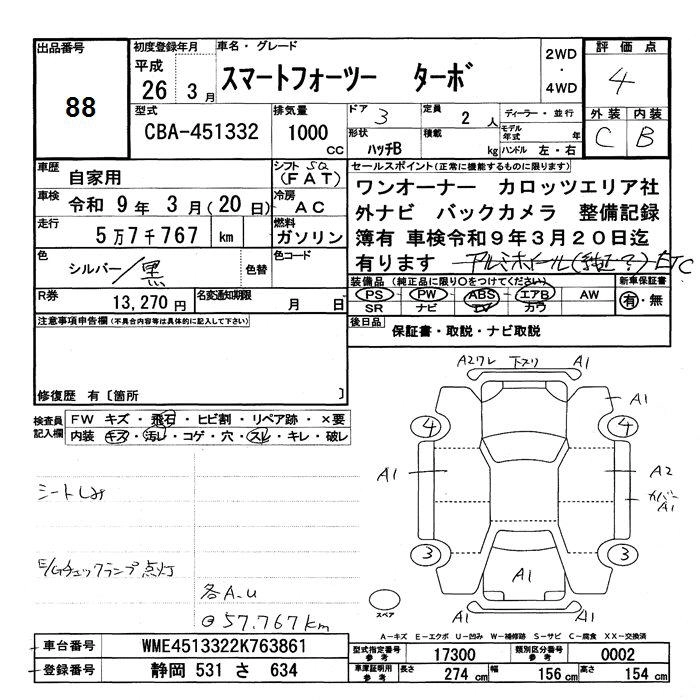 出品番号 88
初度登録年月 平成 26 3月
車名・グレード スマートフォーツー ターボ
2WD・4WD
評価点 4
型式 CBA-451332
排気量 1000 CC
ドア 3
形状 ハッチB
定員 2人
積載 kg
ディーラー・並行
モデル年式 年
ハンドル 左・右
外装 C 内装 B
車歴 自家用
シフト (FAT)
車検 令和 9年 3月(20日)
冷房 AC
走行 5万7千767 km
燃料 ガソリン
色 シルバー/黒 色替
色コード
R券 13,270円
名変通知期限 月 日
セールスポイント(正常に機能するものに限ります)
ワンオーナー カロッツエリア社
外ナビ バックカメラ 整備記録
簿有 車検令和9年3月20日迄
有ります アルミホイール(純正?) ETC
装備品(純正品に限り○をつけてください)
PS PW ABS エアB AW
SR ナビ TV カワ
新車保証書 有・無
後日品 保証書・取説・ナビ取説
注意事項申告欄(不具合内容等は具体的に記入して下さい)
修復歴 有〔箇所 〕
検査員記入欄
FW キズ・飛石・ヒビ割・リペア跡・×要
内装 キズ・汚レ・コゲ・穴・スレ・キレ・破レ
シートしみ
E/Gチェックランプ点灯
各A.U
@57.767km
A2ワレ 下スリ A1
A1
4 4
A1 A2
カバー A1
3 3
A1
A1 A1
スペア
A-キズ E-エクボ U-凹み W-補修跡 S-サビ C-腐食 XX-交換済
車台番号 WME4513322K763861
登録番号 静岡 531 さ 634
型式指定番号 参考 17300
類別区分番号 参考 0002
車庫証明用 参考 長さ 274 cm 幅 156 cm 高さ 154 cm